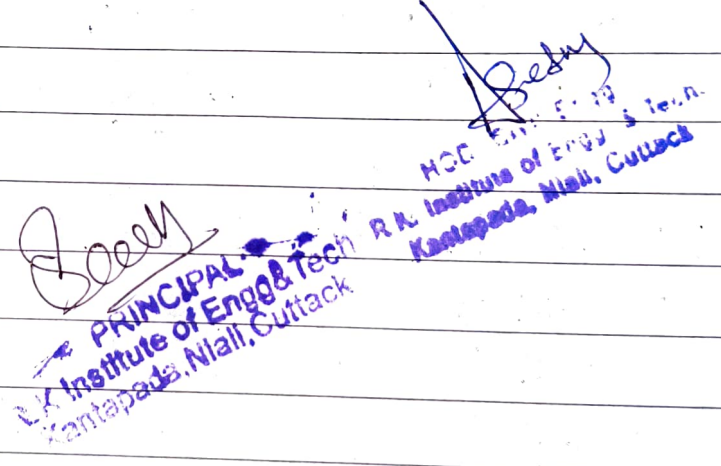 HOD
R.K. Institute of Engg & Tech.
Kantapada, Niali, Cuttack
PRINCIPAL
R.K Institute of Engg&Tech
Kantapada, Niali, Cuttack